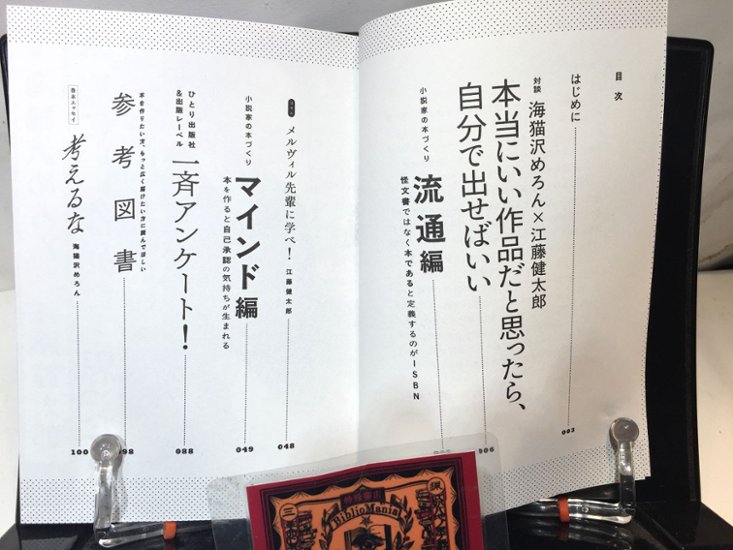 目次
はじめに
002
対談 海猫沢めろん×江藤健太郎
本当にいい作品だと思ったら、
自分で出せばいい
006
小説家の本づくり
流通編
怪文書ではなく本であると定義するのがISBN
メルヴィル先輩に学べ! 江藤健太郎
048
小説家の本づくり
マインド編
本を作ると自己承認の気持ちが生まれる
049
ひとり出版社
&出版レーベル
一斉アンケート!
088
本を作りたい方、もっと広く届けたい方に読んでほしい
参考図書
098
巻末エッセイ
考えるな 海猫沢めろん
100
BiblioMania